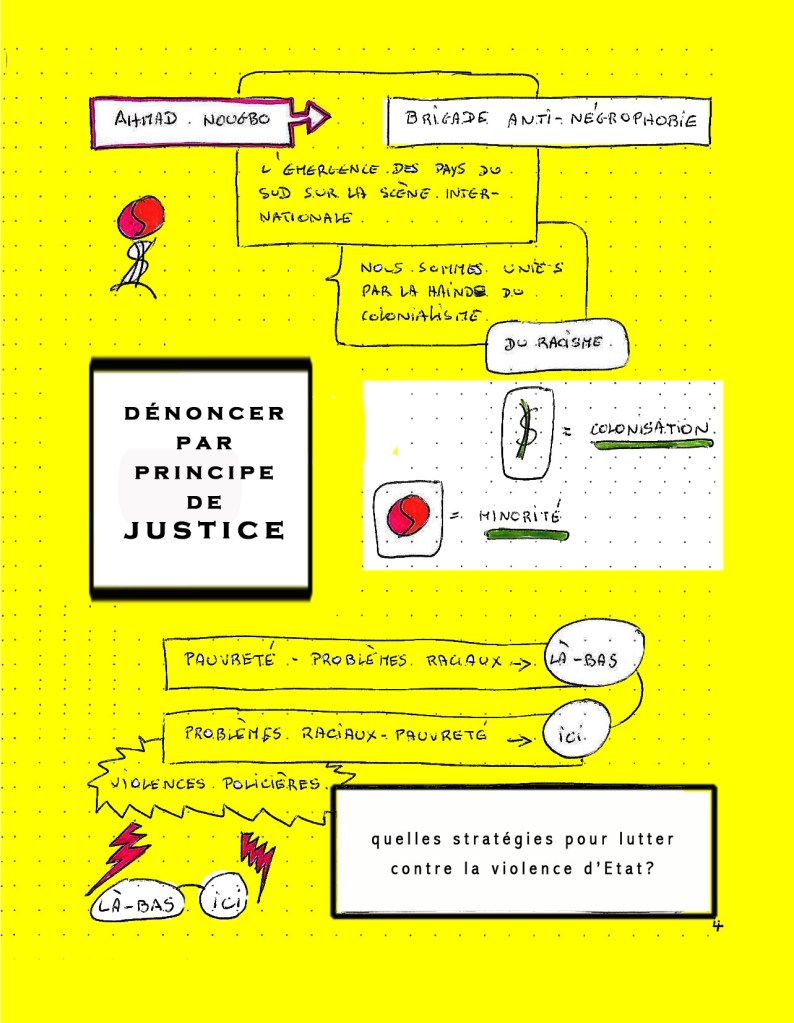 AHMAD. NOUGBO
BRIGADE ANTI-NÉGROPHOBIE
L'ÉMERGENCE.DES PAYS DU.
SUD SUR LA SCÈNE. INTER-
NATIONALE.
NOUS. SOMMES. UNIES
PAR LA HAINE DU
COLONIALISME.
DU. RACISME.
DÉNONCER
PAR
PRINCIPE
DE
JUSTICE
$ = COLONISATION.
= MINORITÉ
PAUVRETÉ - PROBLÈMES. RACIAUX →
LÀ-BAS
PROBLÈMES. RACIAUX-PAUVRETÉ →
ici.
VIOLENCES. POLICIÈRES.
quelles stratégies pour lutter
contre la violence d'Etat?
LÀ-BAS
ici
4